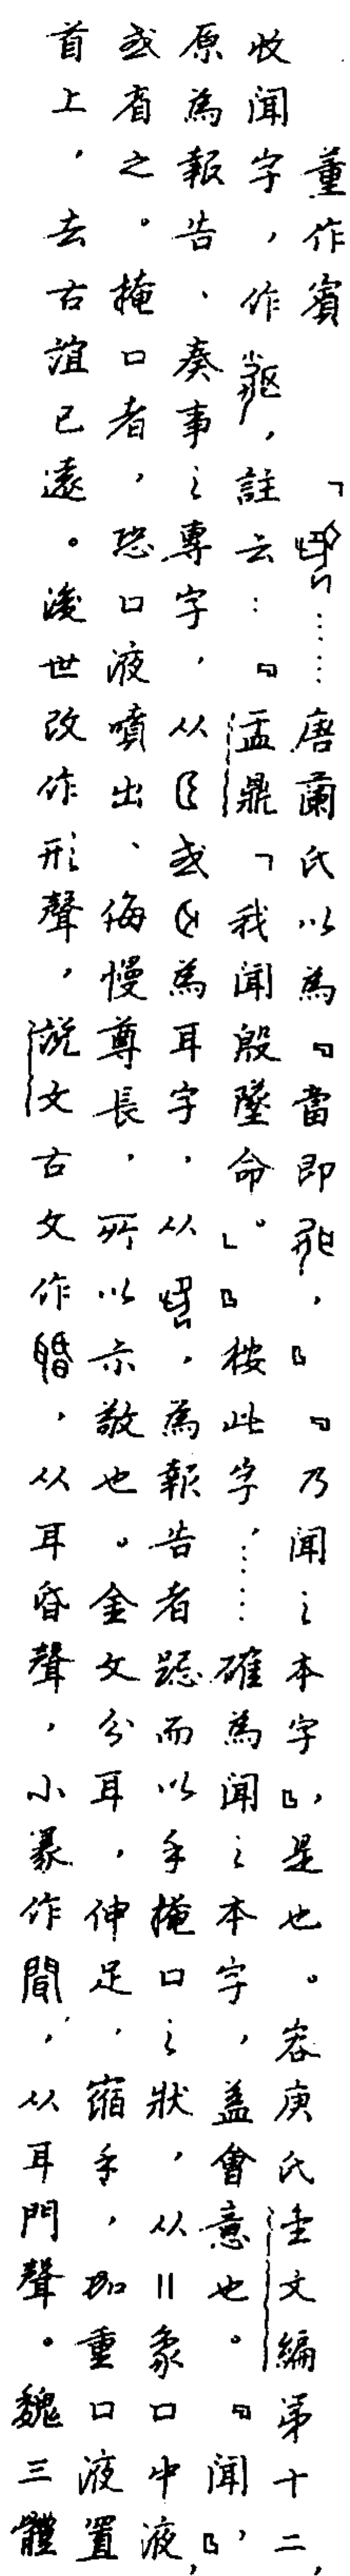 董作賓「……唐蘭氏以為『當即，』『乃聞之本字』，是也。容庚氏金文編第十二，
收聞字，作，註云：『盂鼎「我聞殷墜命。」』按此字，……確為聞之本字，蓋會意也。『聞』，
原為報告、奏事之專字，从或為耳字，从，為報告者跽而以手掩口之狀，从〢象口中液，
或省之。掩口者，恐口液噴出、侮慢尊長，所以示敬也。金文分耳，伸足，縮手，加重口液置
首上，去古誼已遠。後世改作形聲，說文古文作䎽，从耳昏聲，小篆作聞，从耳門聲。魏三體